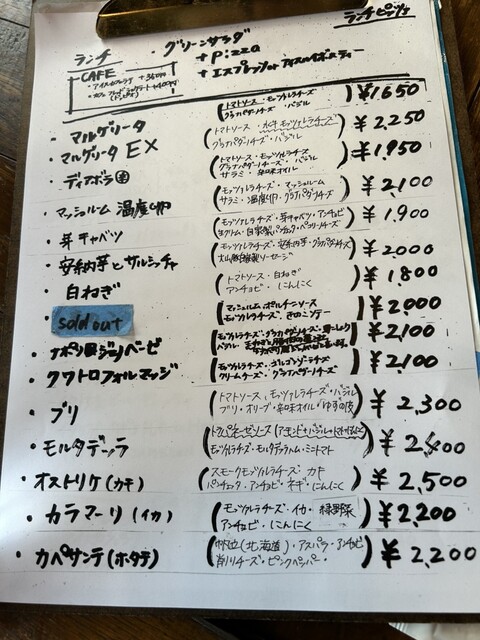 ランチピッツァ
ランチ
・グリーンサラダ
+ pizza
+ エスプレッソor アイスorホットティー
CAFE
・マルゲリータ (トマトソース・モッツァレラチーズ グラナパダーノチーズ・バジル) ¥1,650
・マルゲリータEX (トマトソース・水牛モッツァレラチーズ グラナパダーノチーズ・バジル) ¥2,250
・ディアボラ (トマトソース・モッツァレラチーズ グラナパダーノチーズ・バジル サラミ・辛味オイル) ¥1,950
・マッシュルーム 温度卵 (モッツァレラチーズ・マッシュルーム サラミ・温度卵・グラナパダーノチーズ) ¥2,100
・芽キャベツ (モッツァレラチーズ・芽キャベツ・アンチョビ 生クリーム・自家製パンチェッタ・ペコリーノチーズ) ¥1,900
・安納芋とサルシッチャ (モッツァレラチーズ・安納芋・グラナパダーノチーズ ソーセージ) ¥2,000
・白ねぎ (トマトソース・白ねぎ アンチョビ・にんにく) ¥1,800
・sold out (マッシュルーム ポルチーソース モッツァレラチーズ・きのこ) ¥2,000
・ナポリ風ジェノベーゼ ¥2,100
・クワトロフォルマッジ (モッツァレラチーズ・ゴルゴンゾーラチーズ クリームチーズ・グラナパダーノチーズ) ¥2,100
・ブリ (トマトソース・モッツァレラチーズ・バジル ブリ・オリーブ・辛味オイル・ゆずの皮) ¥2,300
・モルタデッラ (モッツァレラチーズ・モルタデッラハム・ミニトマト)
・オストリケ(カキ) (スモークモッツァレラチーズ・カキ パンチェッタ・アンチョビ・ネギ・にんにく) ¥2,500
・カラマーリ(イカ) (モッツァレラチーズ・イカ・緑野菜 アンチョビ・にんにく) ¥2,200
・カペサンテ(ホタテ) (帆立(北海道)・アスパラ・アンチョビ 削りチーズ・ピンクペッパー・) ¥2,200